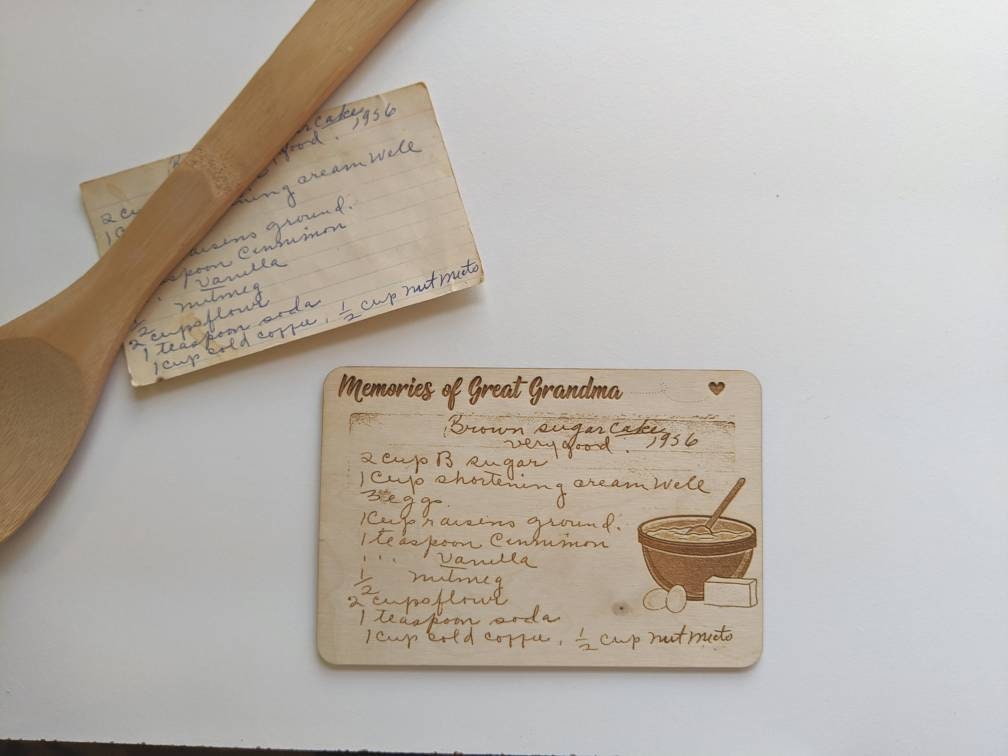 cake
good. 1956
2 cu
ning cream well
raisins ground.
spoon Cinnimon
Vanilla
nutmeg
1/2
2 cups flour
1 teaspoon soda
1 cup cold coffee, 1/2 cup nut meets
Memories of Great Grandma
Brown sugar cake
very good. 1956
2 cup B sugar
1 cup shortening cream well
3 eggs
1 cup raisins ground.
1 teaspoon Cinnimon
1 " " Vanilla
1/2 nutmeg
2 cups flour
1 teaspoon soda
1 cup cold coffee, 1/2 cup nut meets